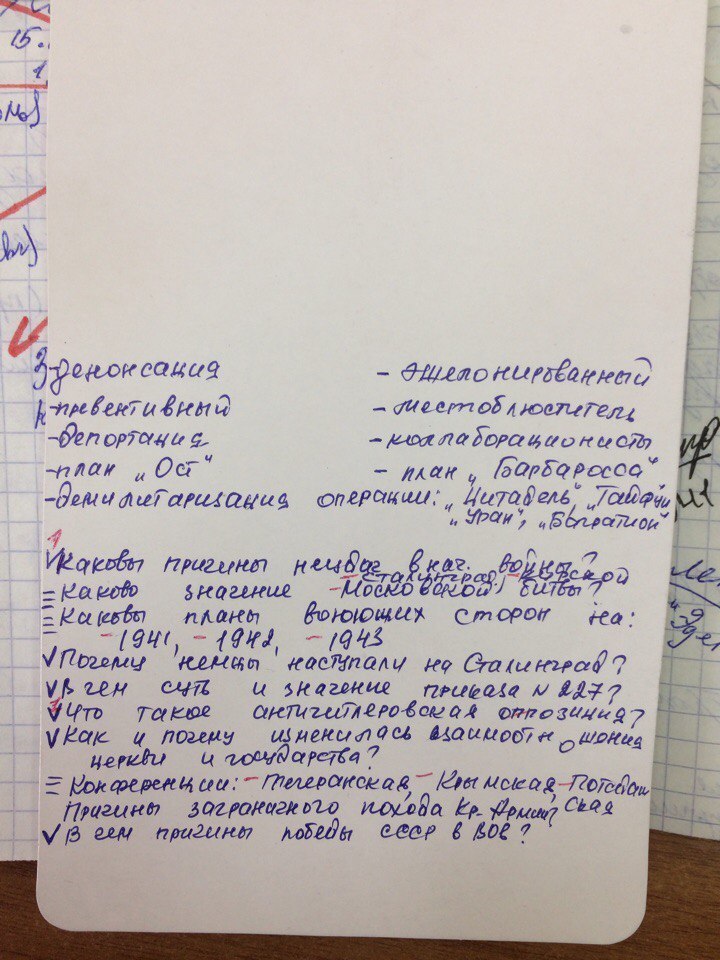 15.
- денонсация - эшелонированный
- превентивный - местоблюститель
- депортация - коллаборационисты
- план „Ост“ - план „Барбаросса“
- демилитаризация операции: „Цитадель“ „Тайфун
„Уран“, „Багратион“
1
✓ Каковы причины неудач в нач. войны?
Сталинград, Курской
≡ Каково значение - Московской битвы?
≡ Каковы планы воюющих сторон на:
- 1941, - 1942, - 1943
✓ Почему немцы наступали на Сталинград?
✓ В чем суть и значение приказа N 227?
✓ Что такое антигитлеровская оппозиция?
✓ Как и почему изменилась взаимоотношения
церкви и государства?
≡ Конференции: - Тегеранская, - Крымская, - Потсдамская
Причины заграничного похода Кр. Армии?
✓ В чем причины победы СССР в ВОВ?